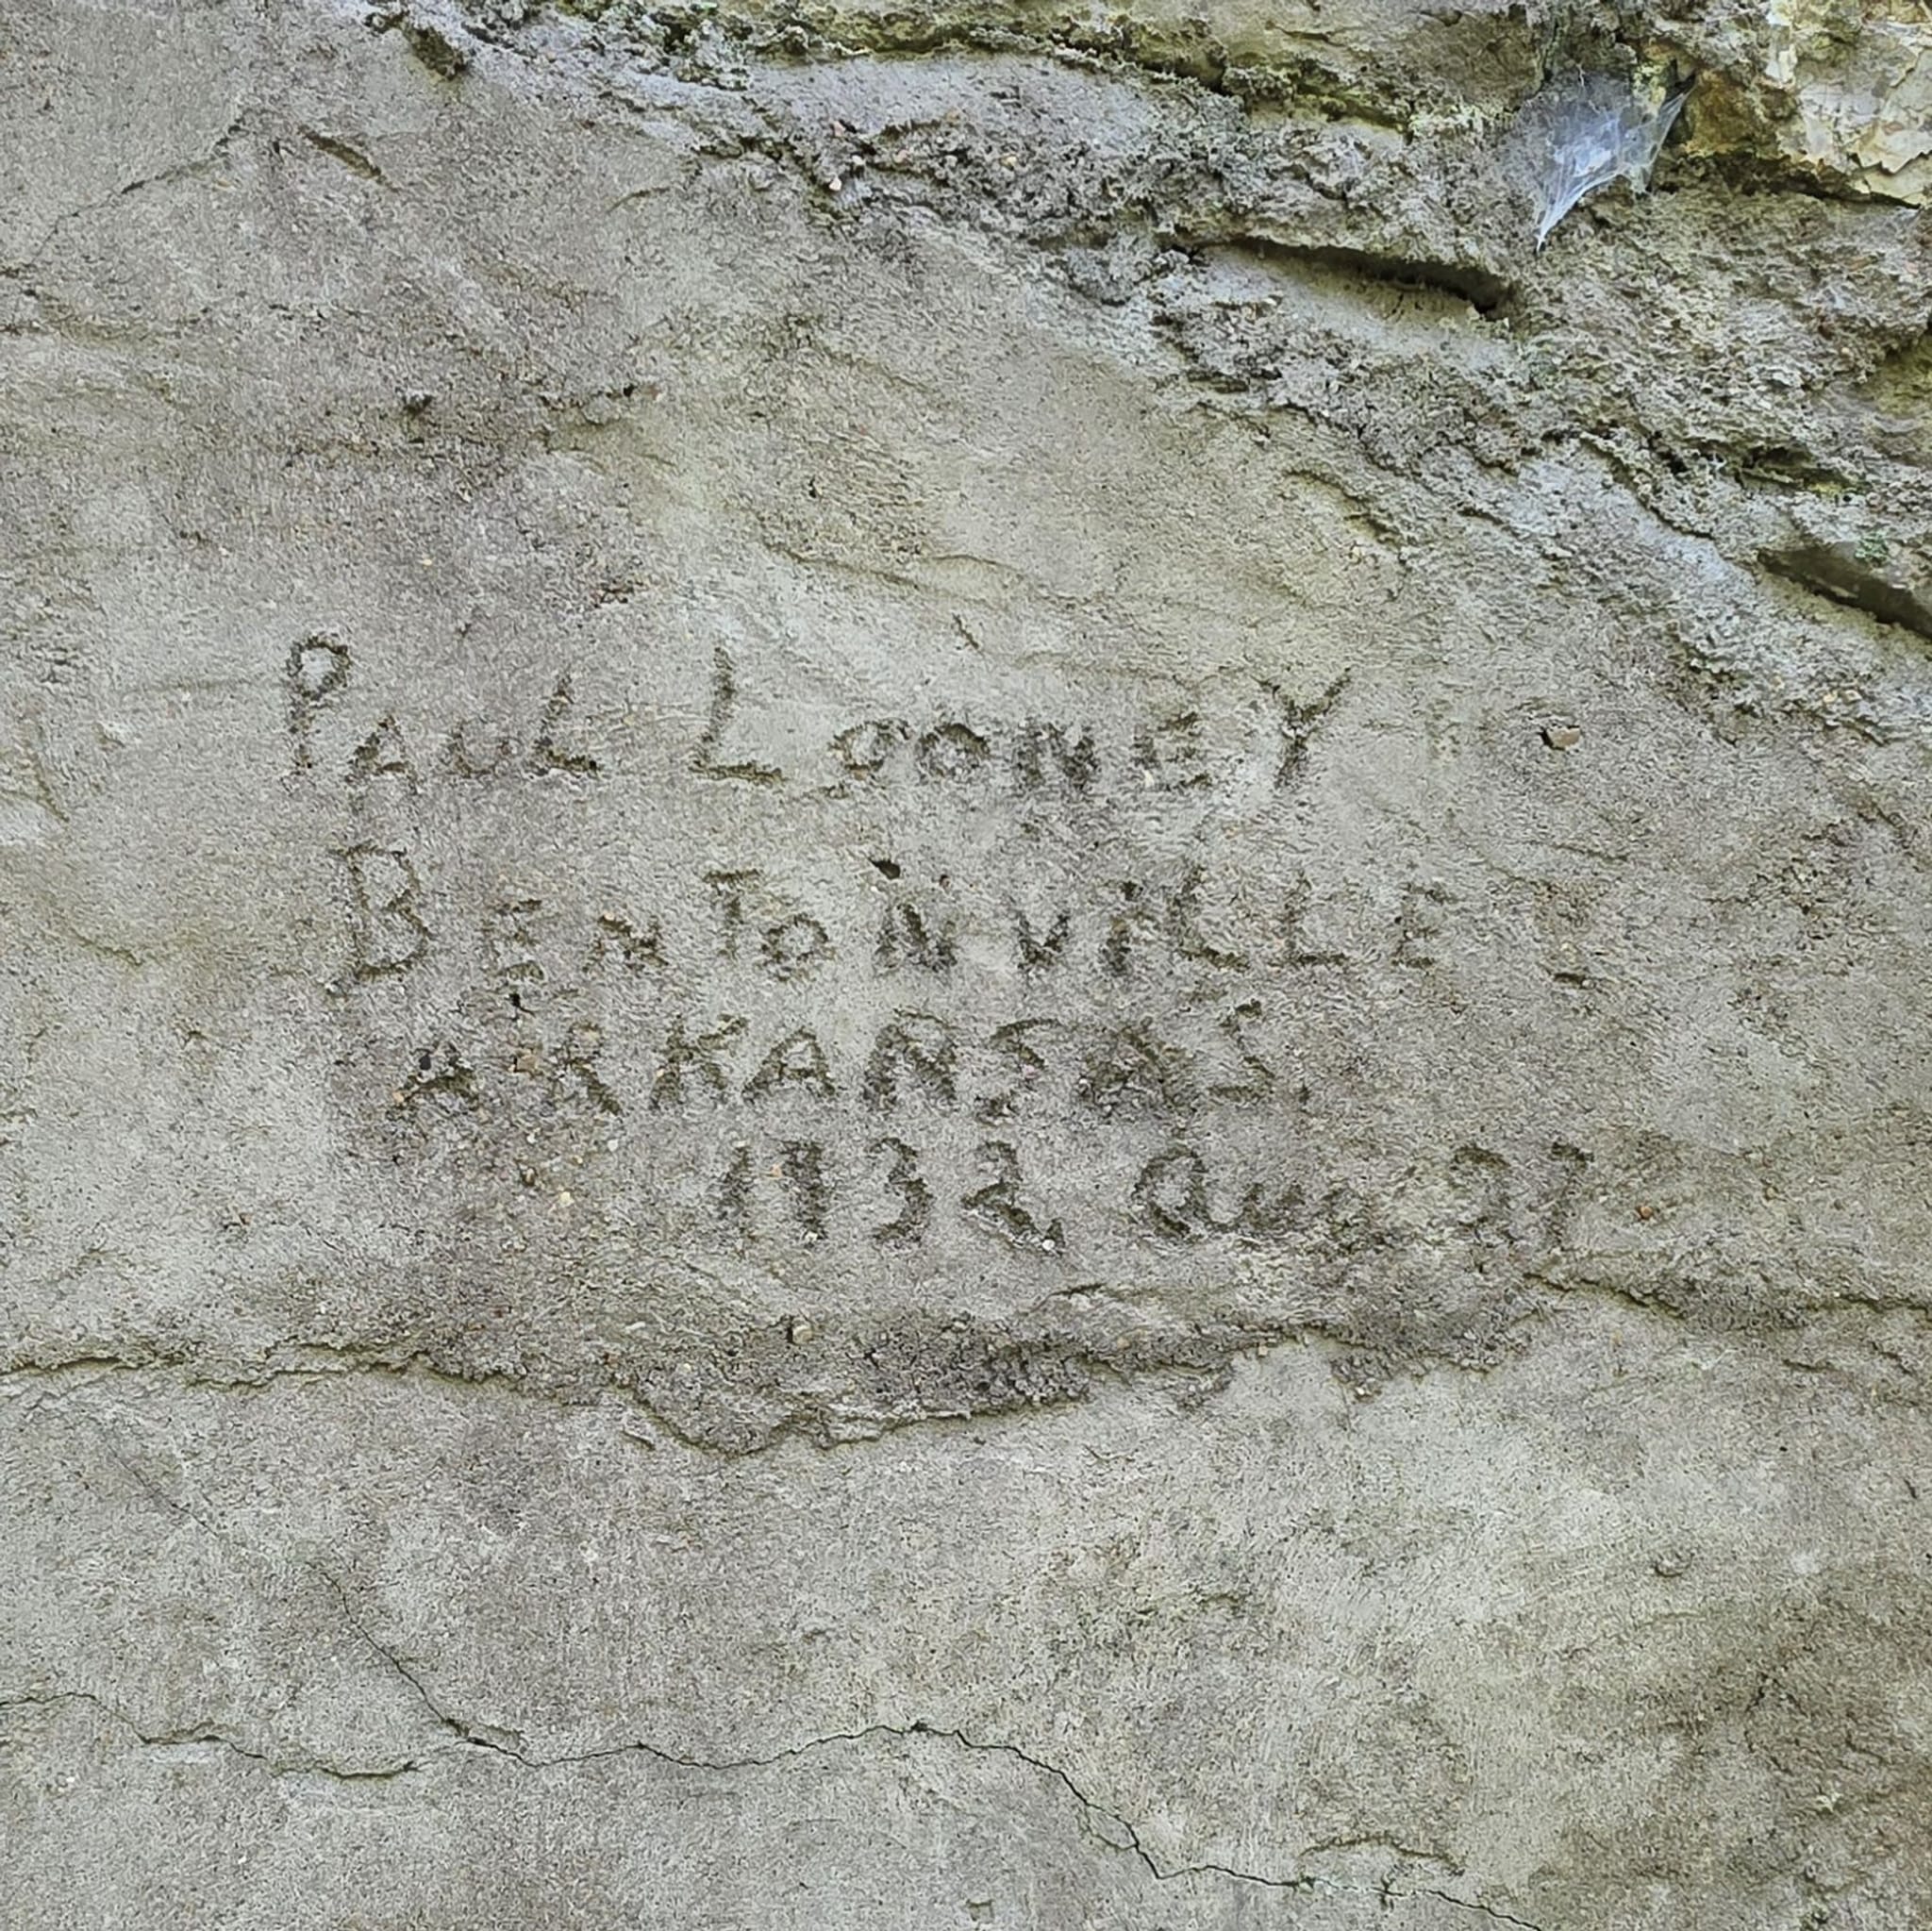 PAUL LOONEY
BENTONVILLE
ARKANSAS
1932